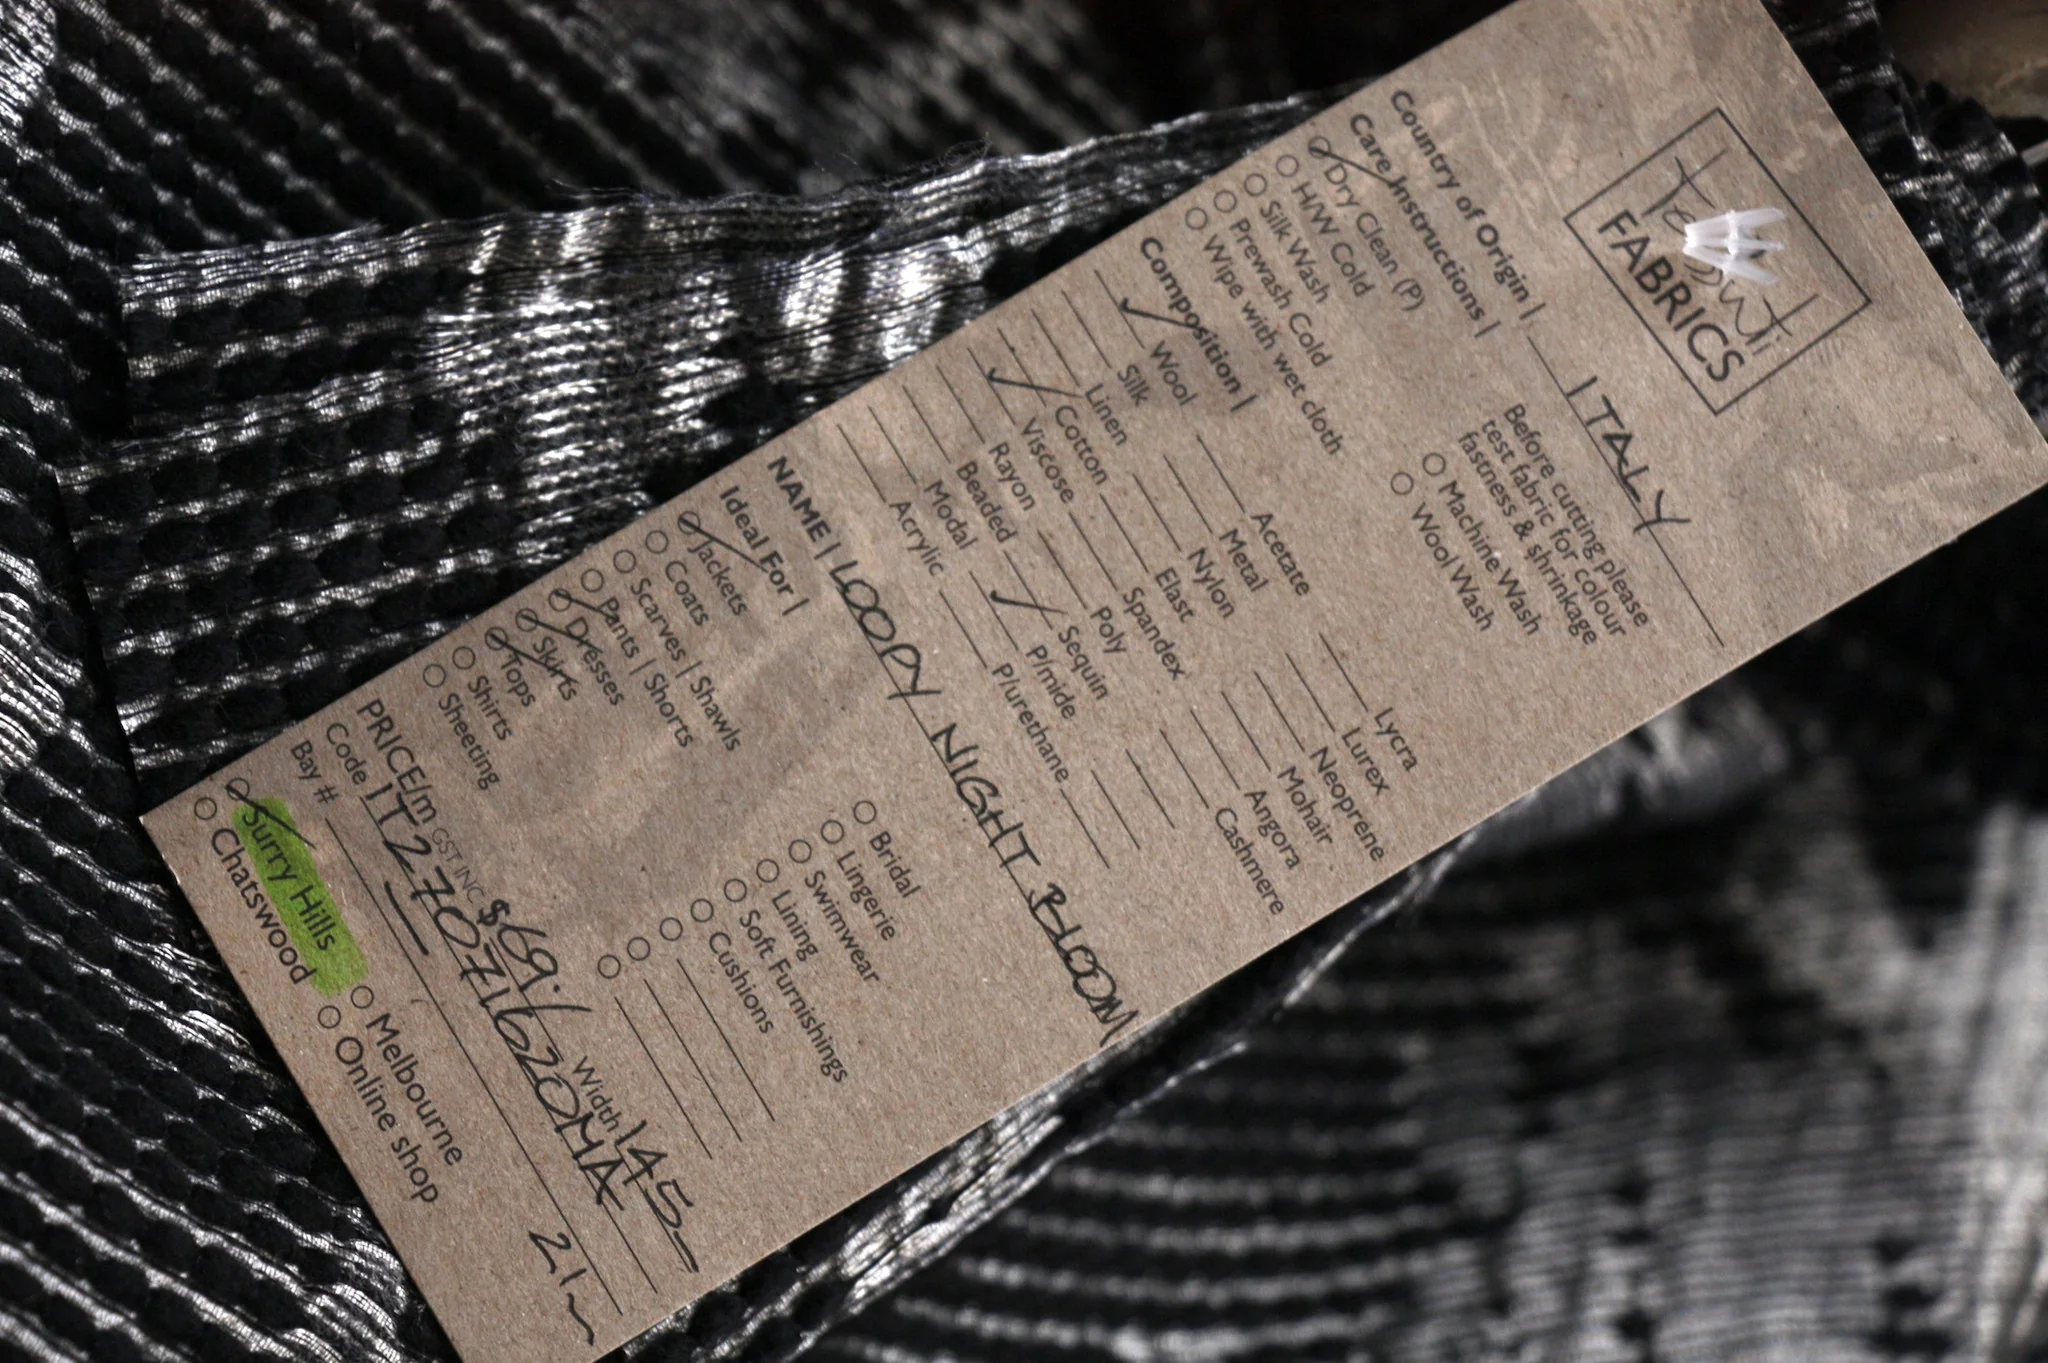 FABRICS
Country of Origin | ITALY
Care Instructions |
Dry Clean (P)
H/W Cold
Silk Wash
Prewash Cold
Wipe with wet cloth
Before cutting please
test fabric for colour
fastness & shrinkage
Machine Wash
Wool Wash
Composition |
Wool Acetate Lycra
Silk Metal Lurex
Linen Nylon Neoprene
Cotton Elast Mohair
Viscose Spandex Angora
Rayon Poly Cashmere
Beaded Sequin
Modal P/mide
Acrylic P/urethane
NAME | LOOPY NIGHT BLOOM
Ideal For |
Jackets
Coats
Scarves | Shawls
Pants | Shorts
Dresses
Skirts
Tops
Shirts
Sheeting
Bridal
Lingerie
Swimwear
Lining
Soft Furnishings
Cushions
PRICE/m GST INC Width 145
Code IT27071620MA
Bay #
Surry Hills Melbourne
Chatswood Online shop